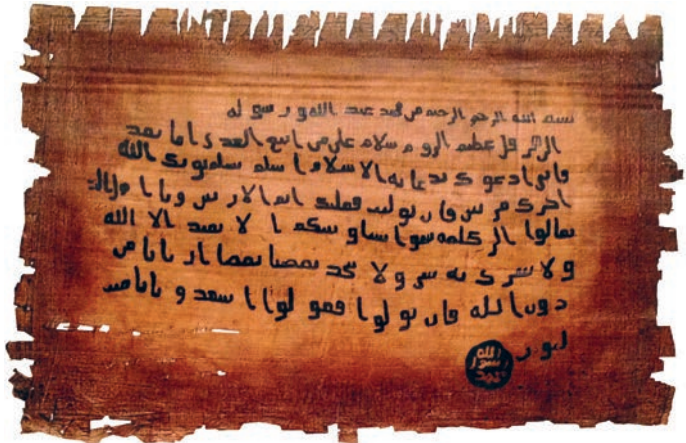 بسم الله الرحمن الرحيم من محمد عبد الله ورسوله
الى هرقل عظيم الروم سلام على من اتبع الهدى اما بعد
فانى ادعوك بدعاية الاسلام اسلم تسلم يوتك الله
اجرك مرتين فان توليت فعليك اثم الاريسين ويا اهل الكتاب
تعالوا الى كلمة سوا بيننا وبينكم ا لا نعبد الا الله
ولا نشرك به شيا ولا يتخذ بعضنا بعضا اربابا من
دون الله فان تولوا فقولوا اشهدوا بانا مس
لمون
الله
رسول
محمد